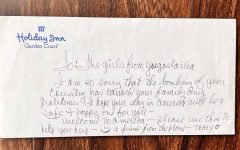 Holiday Inn
Garden Court
To: The girls from yugoslavia
I am so sorry that the bombing of your
country has caused your family any
problems. I hope your stay in america will be a
safe + happy one for you —
welcome to america — please use this to
help you here — a friend from the plane — Tracy